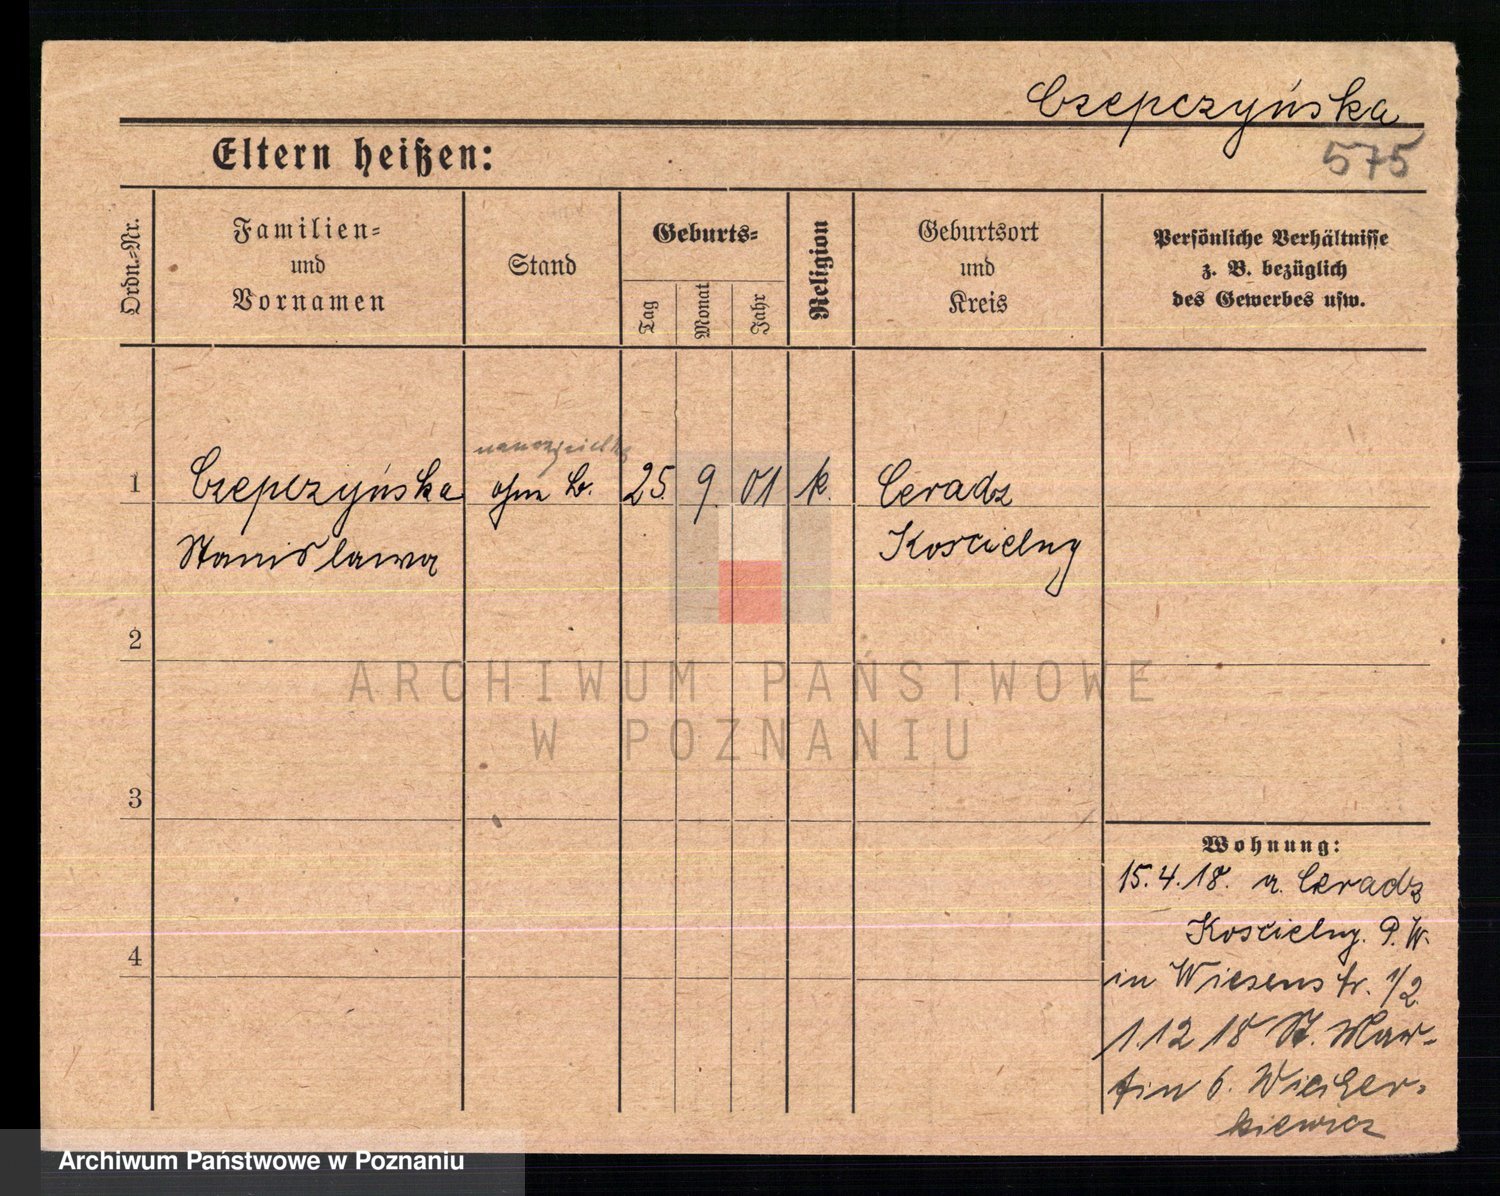 Czepczyńska
575
Eltern heißen:
Ordn.-Nr.
Familien-
und
Vornamen
Stand
Geburts-
Tag
Monat
Jahr
Religion
Geburtsort
und
Kreis
Persönliche Verhältnisse
z. B. bezüglich
des Gewerbes usw.
nauczycielka
1 Czepczyńska ohne B. 25. 9. 01 k. Ceradz
Stanisława Koscielny
2
ARCHIWUM PAŃSTWOWE
W POZNANIU
3
4
Wohnung:
15.4.18. a. Ceradz
Koscielny. P. W.
in Wiesenstr. 1/2
1.12 18 St. Mar-
tin 6. Wicher-
kiewicz
Archiwum Państwowe w Poznaniu